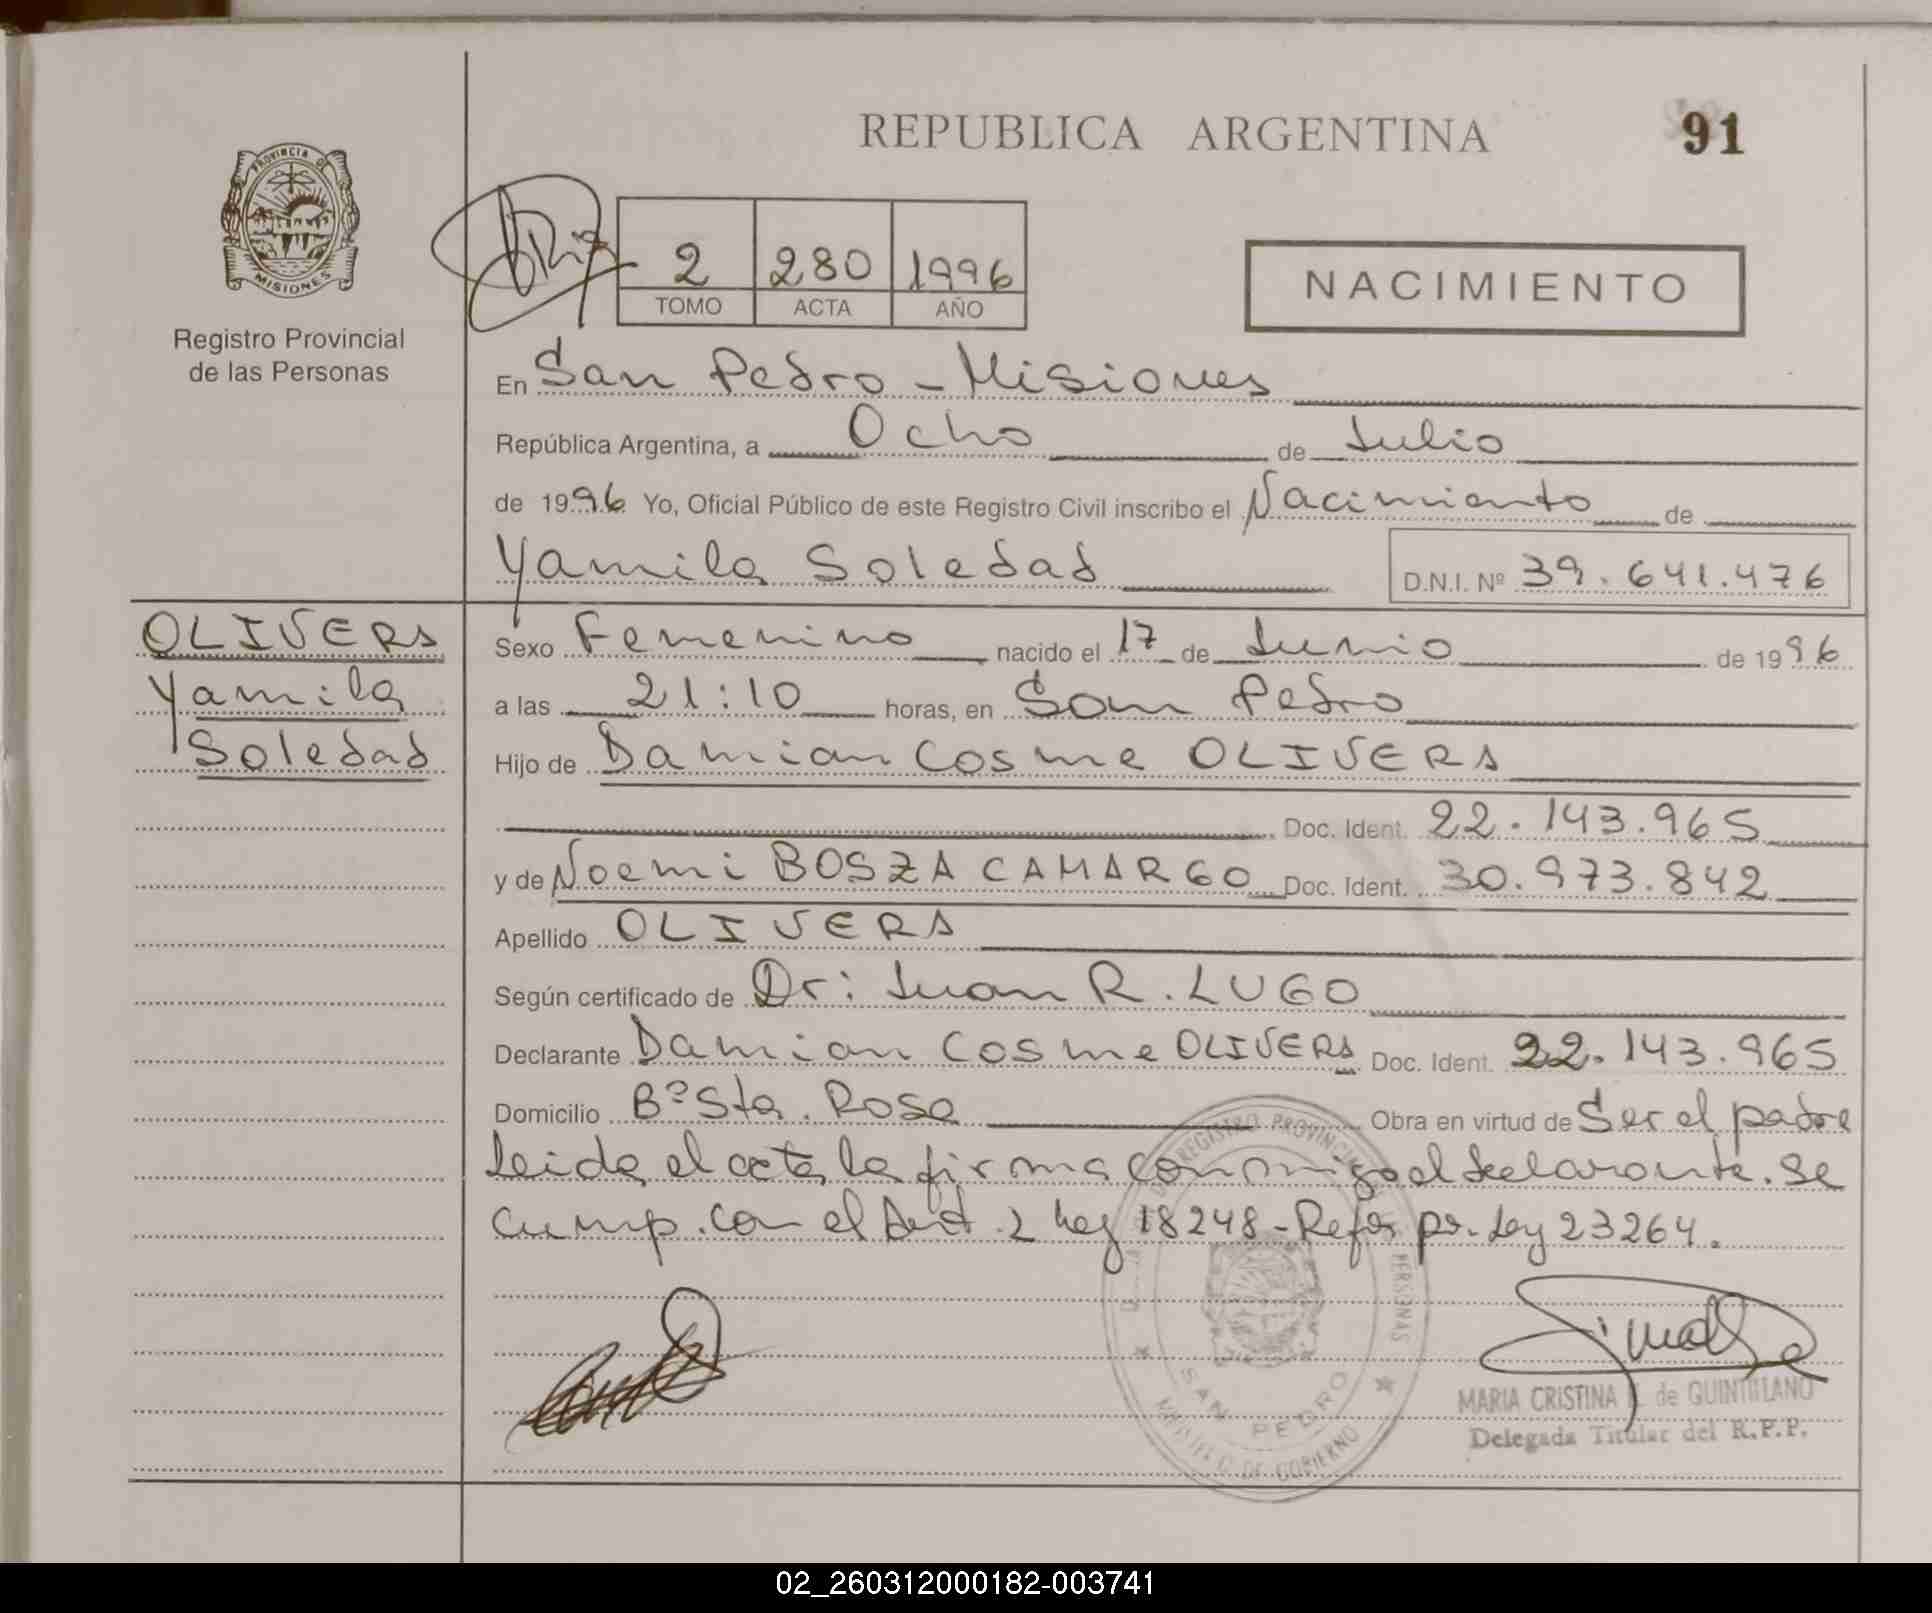 REPUBLICA ARGENTINA
91
PROVINCIA DE
MISIONES
Registro Provincial
de las Personas
2 280 1996
TOMO ACTA AÑO
NACIMIENTO
En San Pedro - Misiones
República Argentina, a Ocho de Julio
de 1996 Yo, Oficial Público de este Registro Civil inscribo el Nacimiento de
Yamila Soledad D.N.I. Nº 39.641.476
OLIVERA
Yamila
Soledad
Sexo Femenino nacido el 17 de Junio de 1996
a las 21:10 horas, en San Pedro
Hijo de Damian Cosme OLIVERA
Doc. Ident. 22.143.965
y de Noemi BOSZA CAMARGO Doc. Ident. 30.973.842
Apellido OLIVERA
Según certificado de Dr: Juan R. LUGO
Declarante Damian Cosme OLIVERA Doc. Ident. 22.143.965
Domicilio Bº Sta. Rosa Obra en virtud de Ser el padre
Leida el acta la firma conmigo el declarante. Se
cump. con el Art. 2 Ley 18248 - Refor por. Ley 23264.
REGISTRO PROVINCIAL PERSONAS
SAN PEDRO
DE GOBIERNO
MARIA CRISTINA de QUINTILLANO
Delegada Titular del R.P.P.
02_260312000182-003741